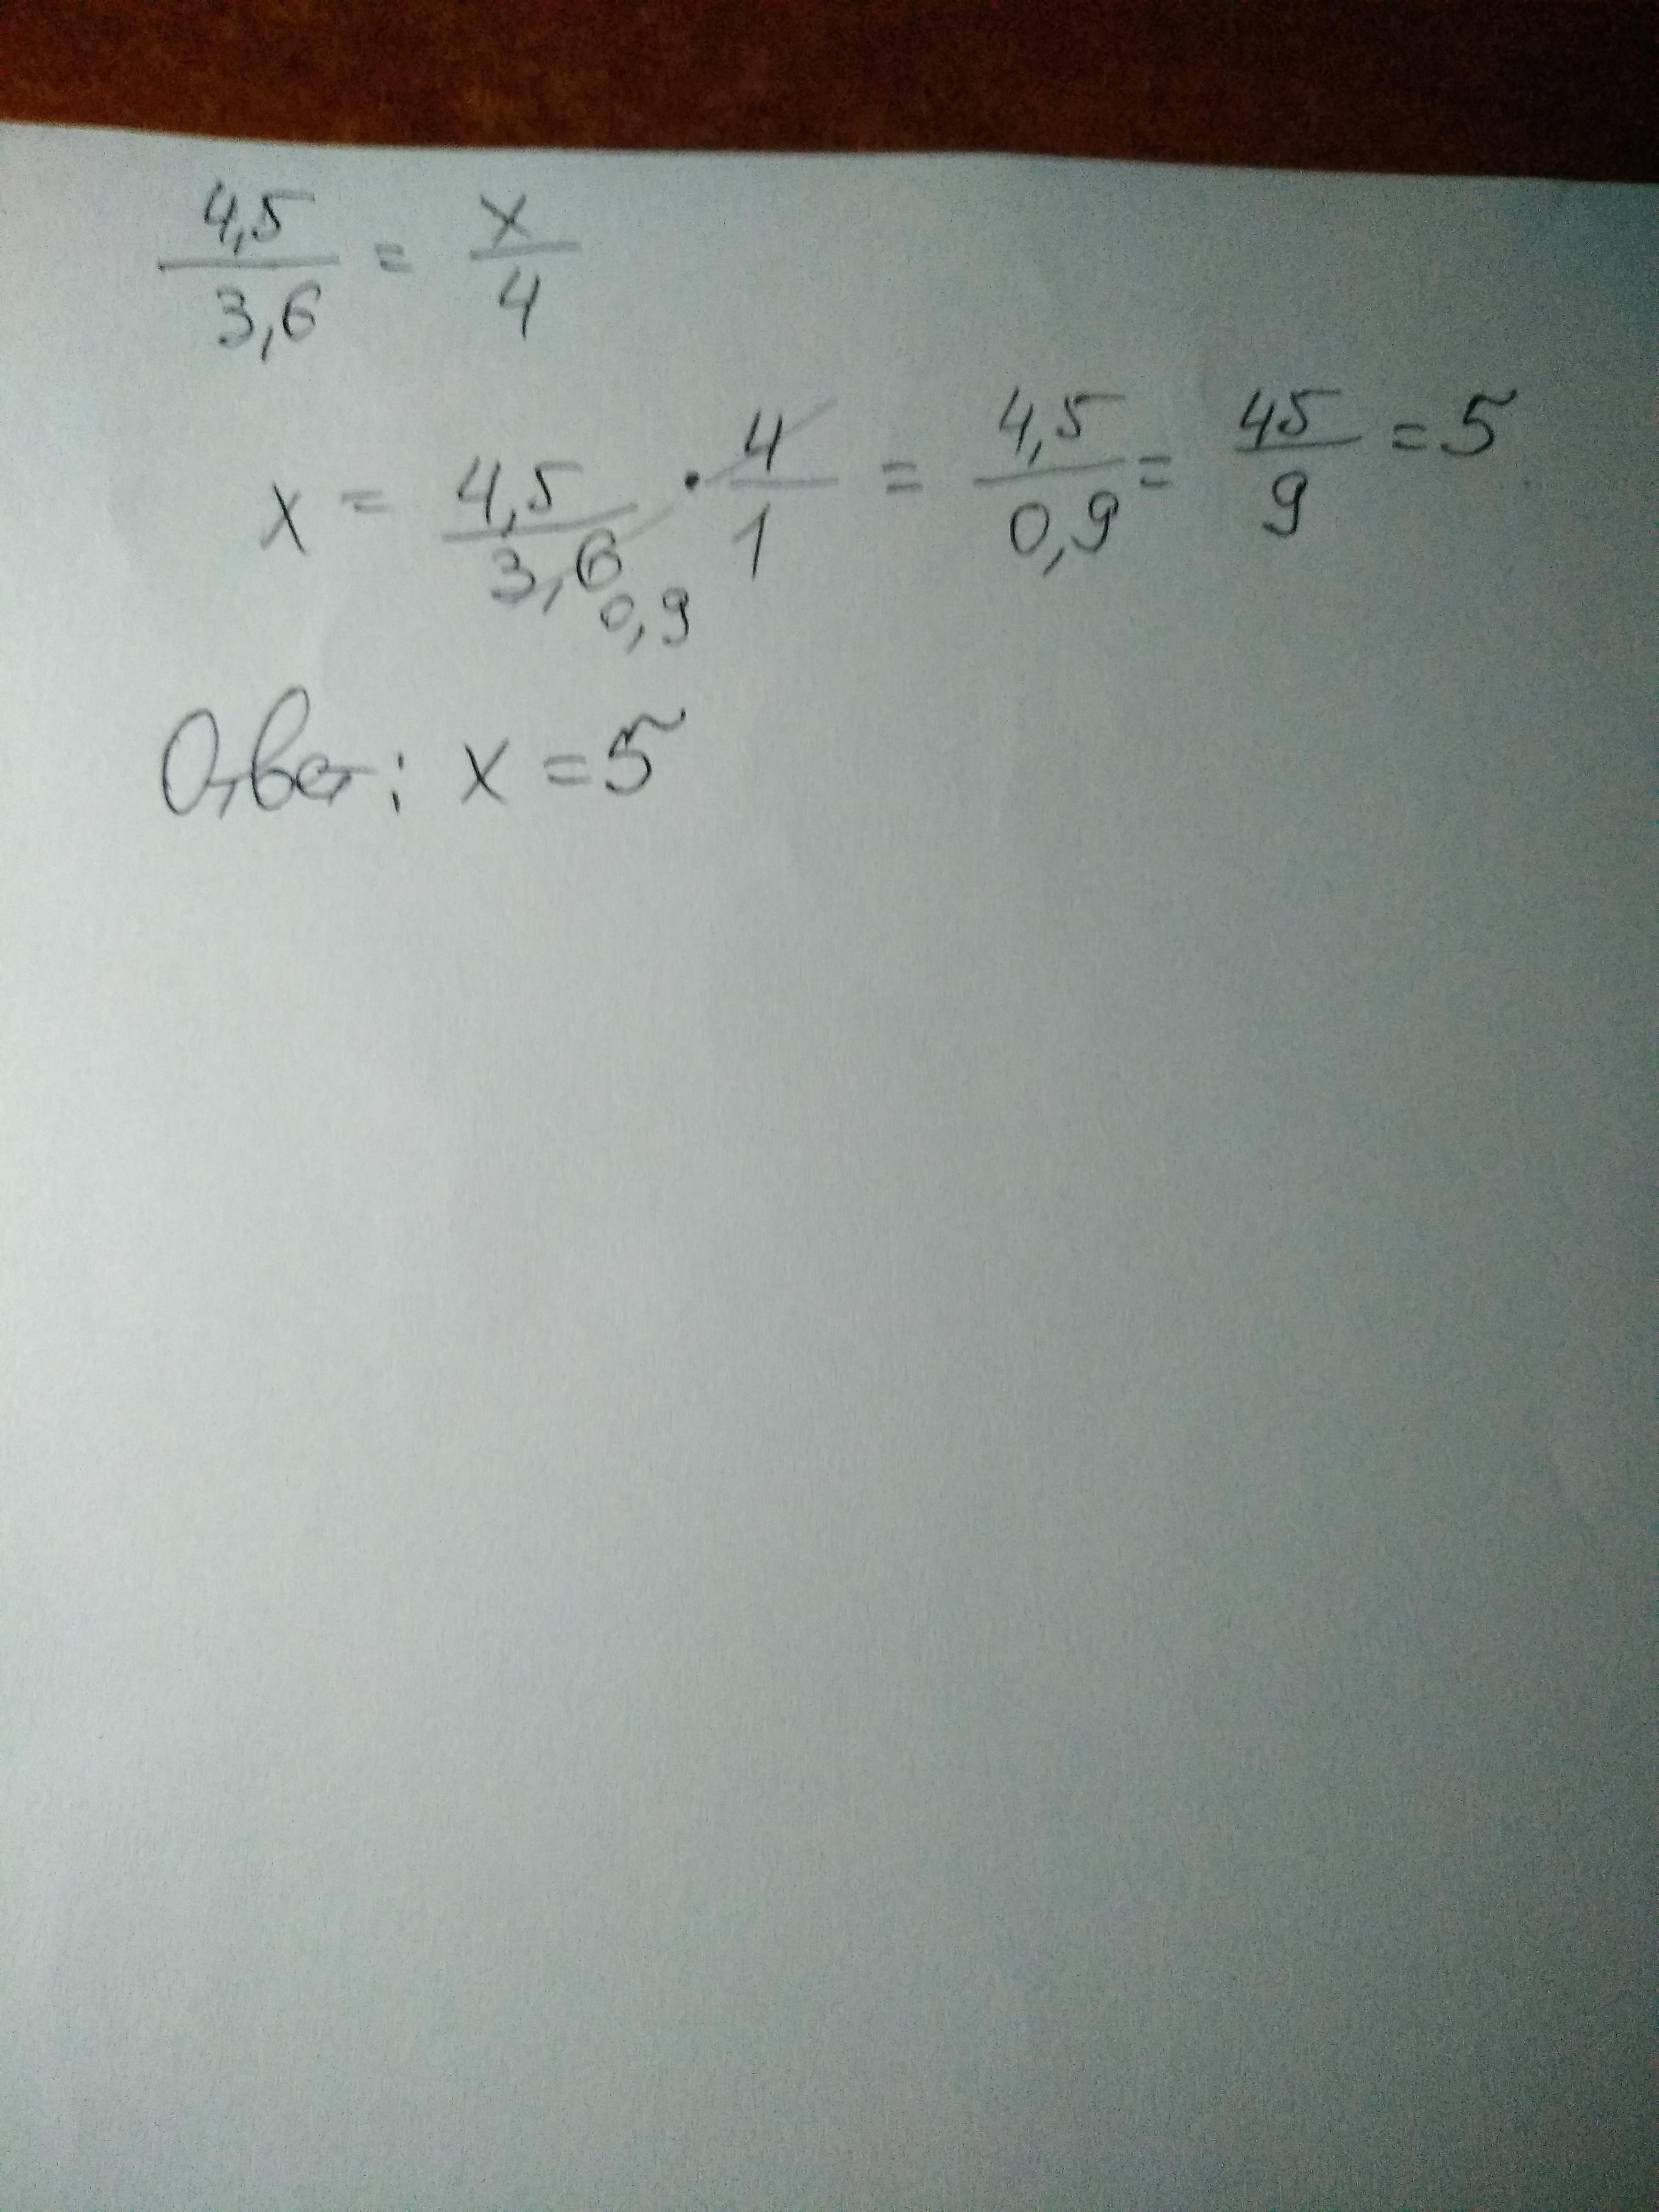 4,5/3,6 = x/4
x = 4,5/3,6 0,9 · 4/1 = 4,5/0,9 = 45/9 = 5
Ответ: x = 5